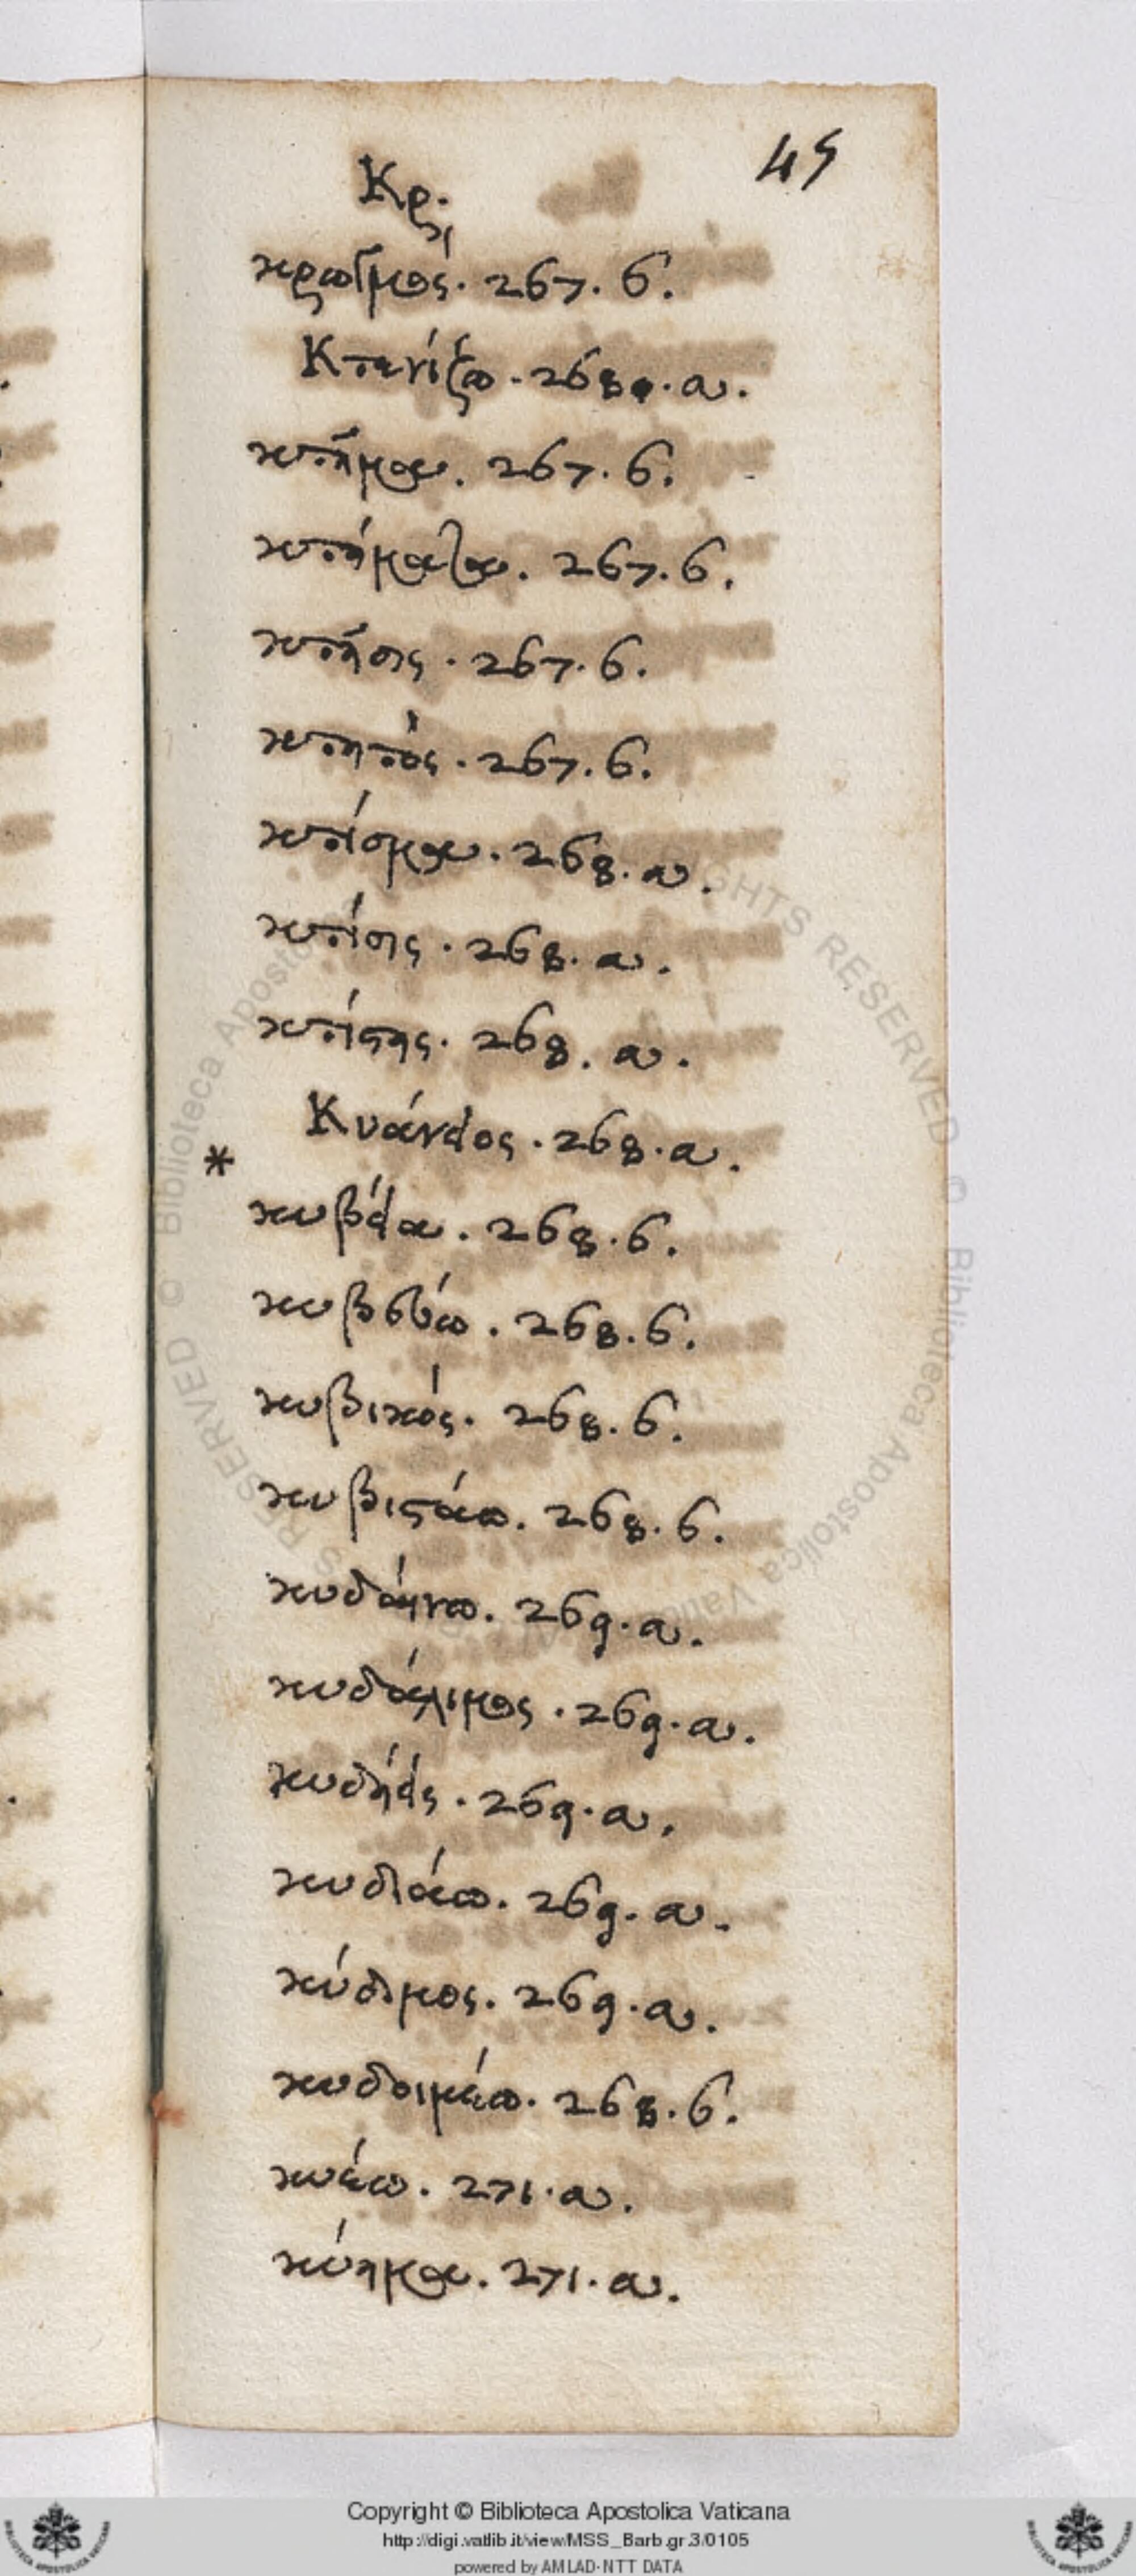 45
Κρ.
κρωγμός. 267. б.
Κτενίζω. 268. α.
κτῆμα. 267. б.
κτήματα. 267. б.
κτῆσις. 267. б.
κτητὸς. 267. б.
κτίσμα. 268. α.
κτίσις. 268. α.
κτίστης. 268. α.
Κυάνεος. 268. α.
* κυβεία. 268. б.
κυβεύω. 268. б.
κυβικός. 268. б.
κυβιστάω. 268. б.
κυδαίνω. 269. α.
κυδάλιμος. 269. α.
κυδήεις. 269. α.
κυδιάω. 269. α.
κύδιμος. 269. α.
κυδοιμέω. 268. б.
κυέω. 271. α.
κύημα. 271. α.
Copyright © Biblioteca Apostolica Vaticana
http://digi.vatlib.it/view/MSS_Barb.gr.3/0105
powered by AMLAD-NTT DATA